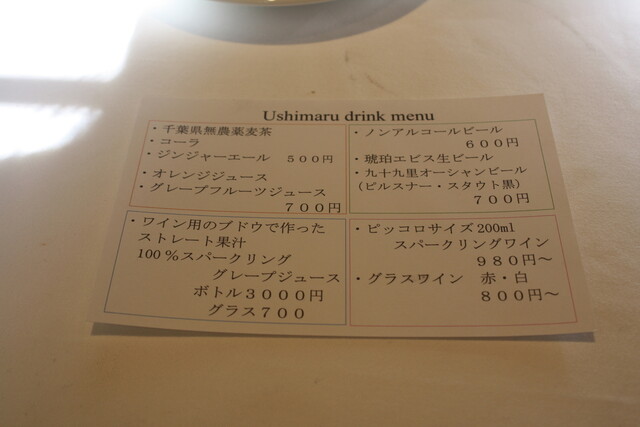 Ushimaru drink menu
・千葉県無農薬麦茶
・コーラ
・ジンジャーエール　５００円
・オレンジジュース
・グレープフルーツジュース
７００円
・ノンアルコールビール
６００円
・琥珀エビス生ビール
・九十九里オーシャンビール
（ピルスナー・スタウト黒）
７００円
・ワイン用のブドウで作った
ストレート果汁
100％スパークリング
グレープジュース
ボトル３０００円
グラス７００
・ピッコロサイズ200ml
スパークリングワイン
９８０円～
・グラスワイン　赤・白
８００円～